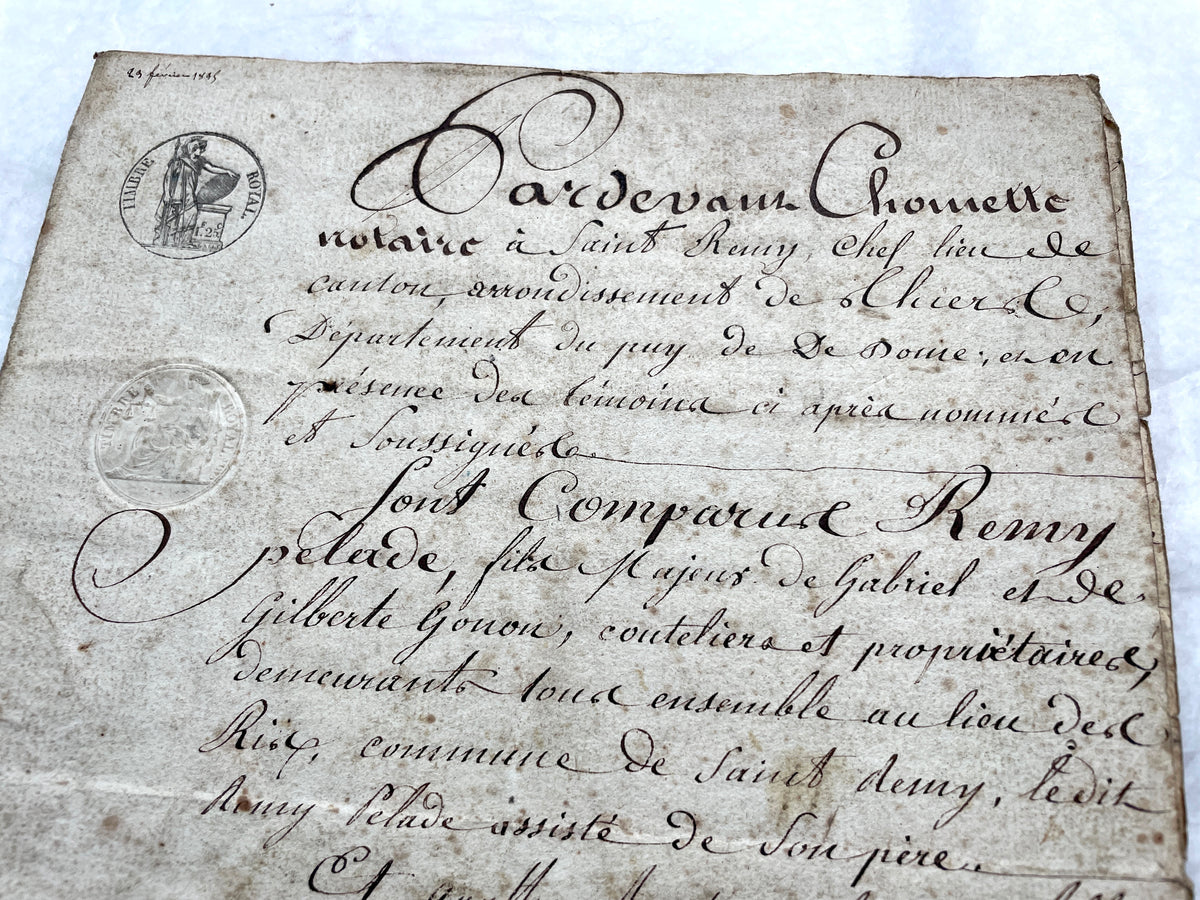 23 février 1835
TIMBRE ROYAL
1.25
TIMBRE ROYAL
Pardevant Chomette
notaire à Saint Remy, chef lieu de
canton, arrondissement de Thiers,
Département du puy de De Dome, et en
présence des témoins ci après nommés
et Soussignés.
Sont Comparus Remy
pelade, fils Majeur de Gabriel et de
Gilberte Gonon, couteliers et propriétaires,
demeurants tous ensemble au lieu des
Rix, commune de Saint Remy, ledit
Remy Pelade assisté de Son père.
Et